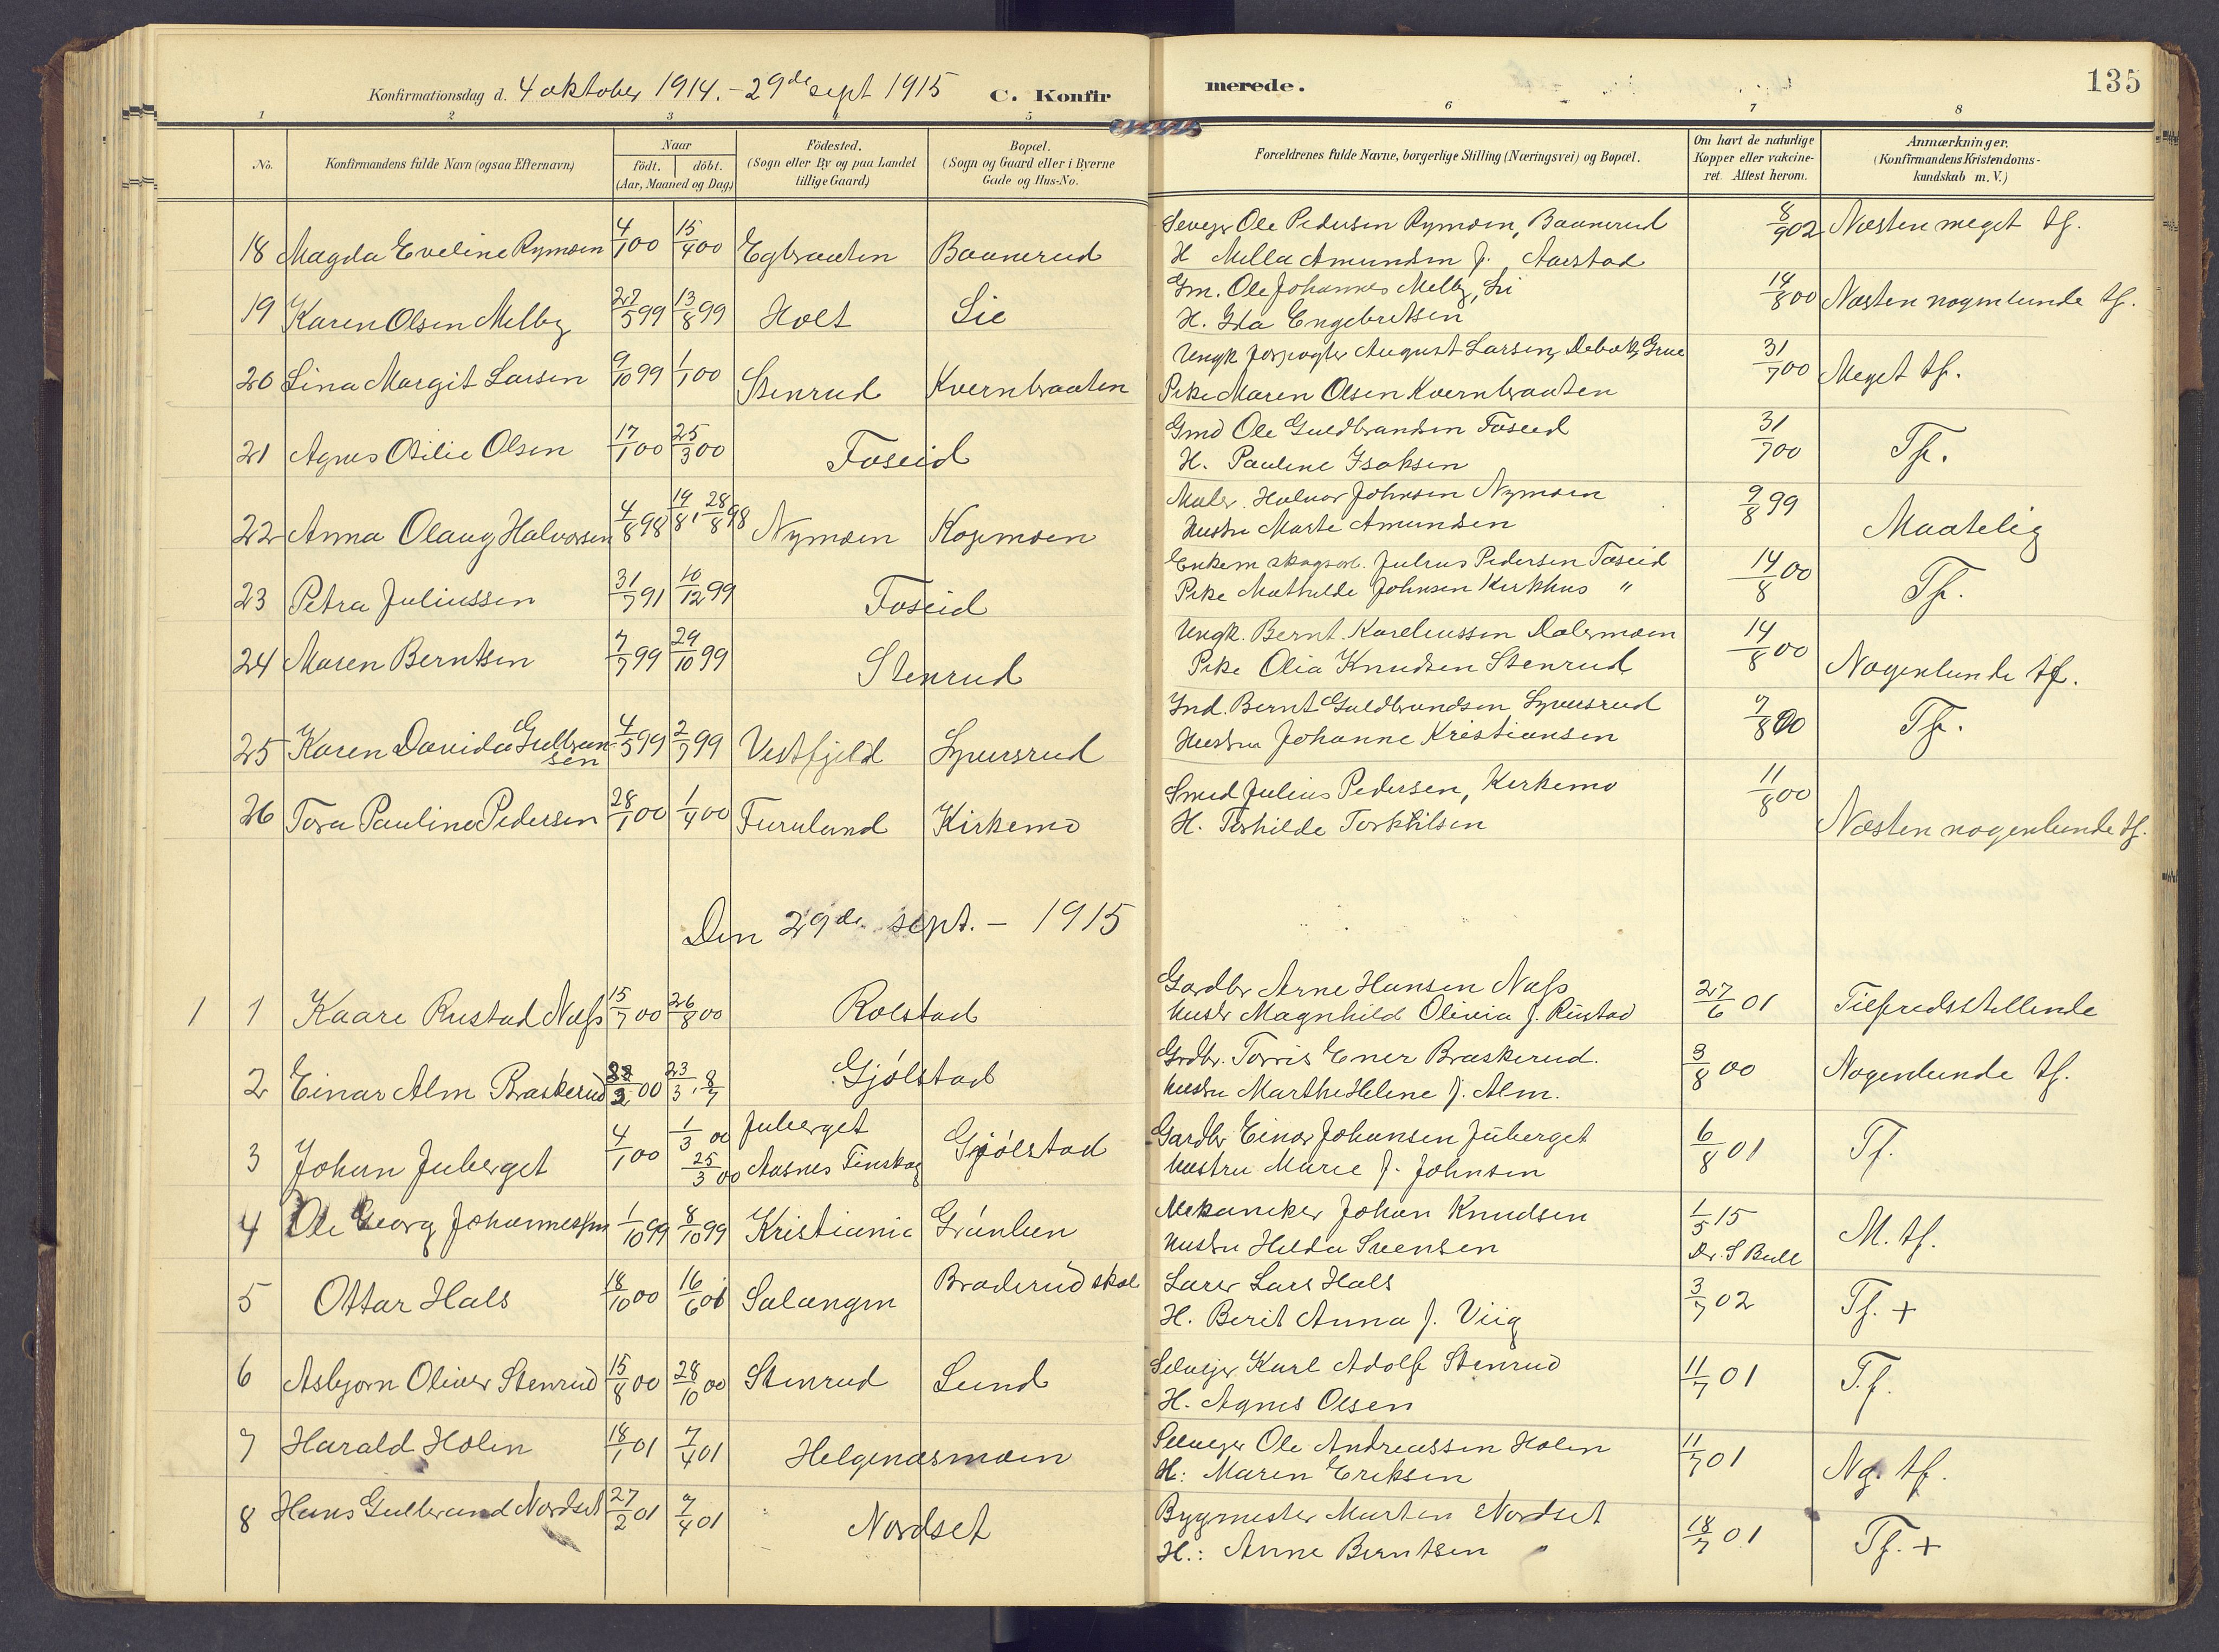 Konfirmationsdag d. 4 oktober 1914. - 29de sept 1915 C. Konfirmerede. 135
1 2 3 4 5 6 7 8
No. Konfirmandens fulde Navn (ogsaa Efternavn) Naar född. döbt. (Aar, Maaned og Dag) Födested. (Sogn eller By og paa Landet tillige Gaard) Bopæl. (Sogn og Gaard eller i Byerne Gade og Hus-No.) Forældrenes fulde Navne, borgerlige Stilling (Næringsvei) og Bopæl. Om havt de naturlige Kopper eller vakcineret. Attest herom. Anmærkninger. (Konfirmandens Kristendomskundskab m. V.)
18 Magda Eveline Rymoen 4/1 00 15/4 00 Egbraaten Baanerud Seveyr Ole Pedersen Rymoen, Baanerud 8/9 02 Næsten meget tf.
H Milla Amundsen f. Aarstad
19 Karen Olsen Melby 27/5 99 13/8 99 Holt Lie Gm. Ole Johannes Melby, Li 14/8 00 Næsten nogenlunde tf.
H. Ida Engebretsen
20 Lina Margit Larsen 9/10 99 1/1 00 Stenrud Kvernbraaten Ungk forpagter August Larsen, Grue 31/7 00 Meget tf.
Pike Maren Olsen Kvernbraaten
21 Agnes Otilie Olsen 17/1 00 25/3 00 Foseid Gmd Ole Guldbrandsen Foseid 31/7 00 Tf.
H. Pauline Isaksen
22 Anna Olaug Halvorsen 4/8 98 19/8, 28/8 98 Nymoen Kopmoen Maler. Halvor Johnsen Nymoen 9/8 99 Maatelig
Hustru Marte Amundsen
23 Petra Juliussen 31/7 91 10/12 99 Foseid Enkem skogsarb. Julius Pedersen Foseid 14/8 00 Tf.
Pike Mathilde Johnsen Kirkhus "
24 Maren Berntsen 7/7 99 29/10 99 Stenrud Ungk. Bernt Kareliussen Dalermoen 14/8 00 Nogenlunde tf.
Pike Olia Knudsen Stenrud
25 Karen Davida Gulbransen 4/5 99 2/7 99 Vestfjeld Spursrud Ind. Bernt Guldbrandsen Spursrud 7/8 00 Tf.
Hustru Johanne Kristiansen
26 Tora Pauline Pedersen 28/1 00 1/4 00 Furulund Kirkemo Smed Julius Pedersen, Kirkemo 11/8 00 Næsten nogenlunde tf.
H. Torhilde Torkhilsen
Den 29de sept. - 1915
1 1 Kaare Rustad Næss 15/7 00 26/8 00 Rolstad Gardbr Arne Hansen Næss 27/6 01 Tilfredsstillende
Hustr Magnhild Olivia f. Rustad
2 Einar Alm Braskerud 00 23/3, 8/7 Gjölstad Grdbr. Torris Ener Braskerud. 3/8 00 Nogenlunde tf.
Hustru Marthe Helene f. Alm.
3 Johan Juberget 4/1 00 1/3 00 25/3 00 Juberget Aasnes Finskog Gjölstad Gardbr Einar Johansen Juberget 6/8 01 Tf.
Hustru Marie f. Johnsen
4 Ole Georg Johannessen 1/10 99 8/10 99 Kristiania Grünlien Mekaniker Johan Knudsen 1/5 15 Dr. S Bull M. tf.
Hustru Hilda Svensen
5 Ottar Hals 18/10 00 16/6 01 Salangen Braderud skole Lærer Lars Hals 3/7 02 Tf. +
H. Berit Anna f. Viig
6 Asbjorn Oliver Stenrud 15/8 00 28/10 00 Stenrud Lund Selvejer Karl Adolf Stenrud 11/7 01 T.f.
H. Agnes Olsen
7 Harald Holen 18/1 01 7/4 01 Helgenæsmoen Selveyer Ole Andreassen Holen 11/7 01 Ng. tf.
H: Maren Eriksen
8 Hans Gulbrand Nordset 27/2 01 7/4 01 Nordset Bygmester Marten Nordset 18/7 01 Tf. +
H.: Anne Berntsen